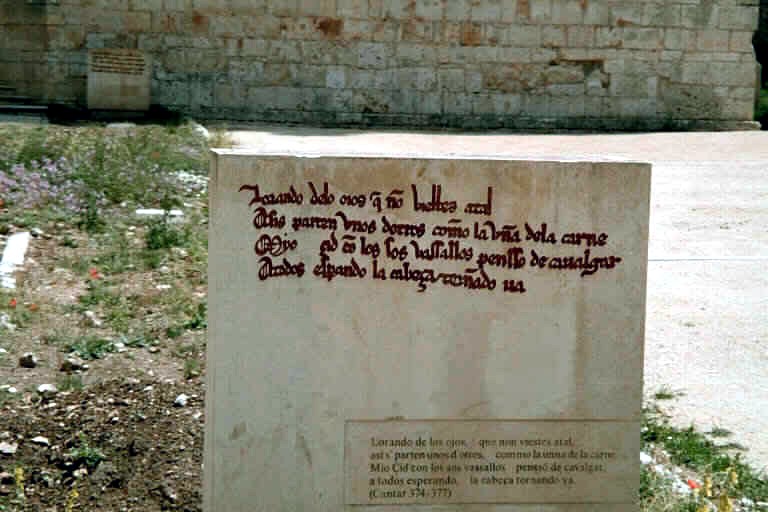 Lorando delos oios q̃ nõ vieltes atal
Asis parten vnos dotros com̃o la vña dela carne
Myo çid cõ los sos vassallos pensso de caualgar
Atodos esperando la cabeça tornãdo ua
Lorando de los ojos, que non viestes atal,
asis' parten unos d'otros, commo la unna de la carne.
Mio Cid con los sus vassallos penssó de cavalgar,
a todos esperando, la cabeça tornando va.
(Cantar 374-377)